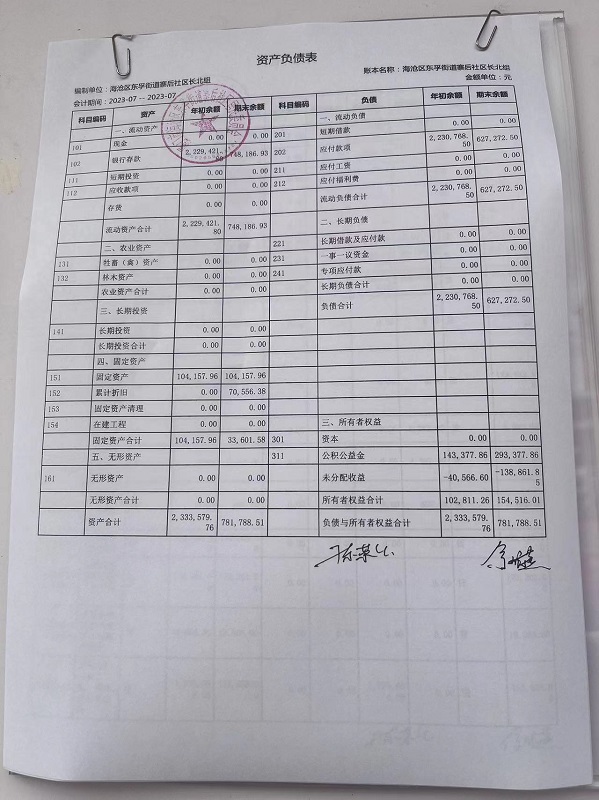 资产负债表
编制单位：海沧区东孚街道寨后社区长北组 账本名称：海沧区东孚街道寨后社区长北组
会计期间：2023-07 -- 2023-07 金额单位：元
科目编码 资产 年初余额 期末余额 科目编码 负债 年初余额 期末余额
一、流动资产 一、流动负债
101 现金 0.00 0.00 201 短期借款 0.00 0.00
102 银行存款 2,229,421.80 748,186.93 202 应付款项 2,230,768.50 627,272.50
111 短期投资 0.00 0.00 211 应付工资 0.00 0.00
112 应收款项 0.00 0.00 212 应付福利费 0.00 0.00
存货 0.00 0.00 流动负债合计 2,230,768.50 627,272.50
流动资产合计 2,229,421.80 748,186.93 二、长期负债
二、农业资产 221 长期借款及应付款 0.00 0.00
131 牲畜（禽）资产 0.00 0.00 231 一事一议资金 0.00 0.00
132 林木资产 0.00 0.00 241 专项应付款 0.00 0.00
农业资产合计 0.00 0.00 长期负债合计 0.00 0.00
三、长期投资 负债合计 2,230,768.50 627,272.50
141 长期投资 0.00 0.00
长期投资合计 0.00 0.00
四、固定资产
151 固定资产 104,157.96 104,157.96
152 累计折旧 0.00 70,556.38
153 固定资产清理 0.00 0.00
154 在建工程 0.00 0.00 三、所有者权益
固定资产合计 104,157.96 33,601.58 301 资本 0.00 0.00
五、无形资产 311 公积公益金 143,377.86 293,377.86
161 无形资产 0.00 0.00 未分配收益 -40,566.60 -138,861.85
无形资产合计 0.00 0.00 所有者权益合计 102,811.26 154,516.01
资产合计 2,333,579.76 781,788.51 负债与所有者权益合计 2,333,579.76 781,788.51